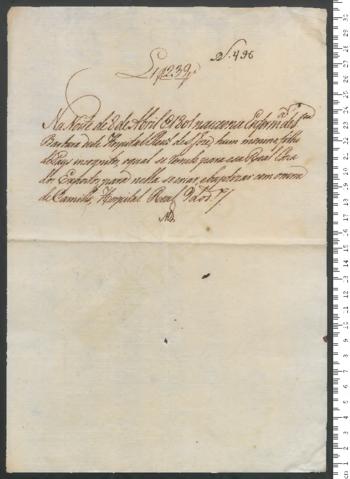 N. 496
L 1239
Na Noite de 8 de Abril de 1801 nasceo na Enfrm.ª de S.ta
Barbara deste Hospital Real de S. José, hum menino, filho
de Pays incognitos, o qual se remete para essa Real Caza
dos Expostos, para nella se criar, e baptizar com o nome
de Camillo, Hospital Real